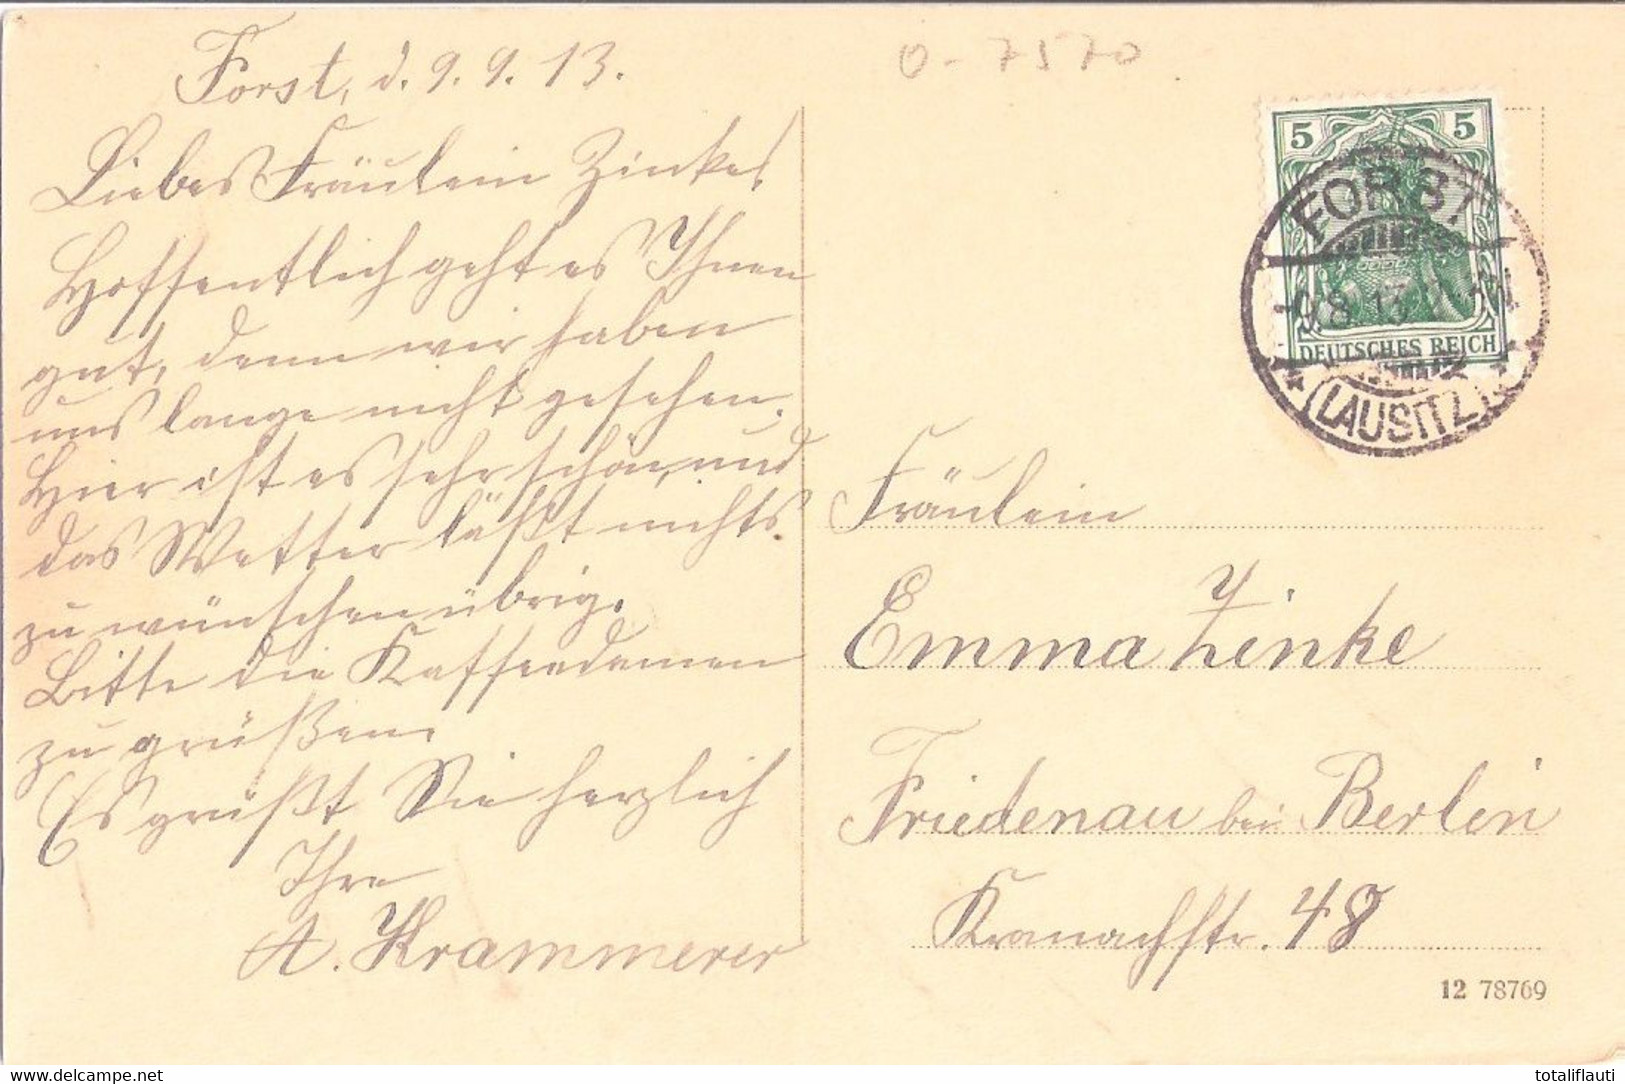 Forst, d. 9. 9. 13.
Liebes Fräulein Zinke!
Hoffentlich geht es Ihnen
gut, denn wir haben
uns lange nicht gesehen.
Hier ist es sehr schön, und
das Wetter läßt nichts
zu wünschen übrig.
Bitte die Kaffeedamen
zu grüßen.
Es grüßt Sie herzlich
Ihre
A. Krammerer
0-7570
5 5
FORST
DEUTSCHES REICH
(LAUSITZ)
Fräulein
Emma Zinke
Friedenau bei Berlin
Kranachstr. 48
12 78769
totaliflauti